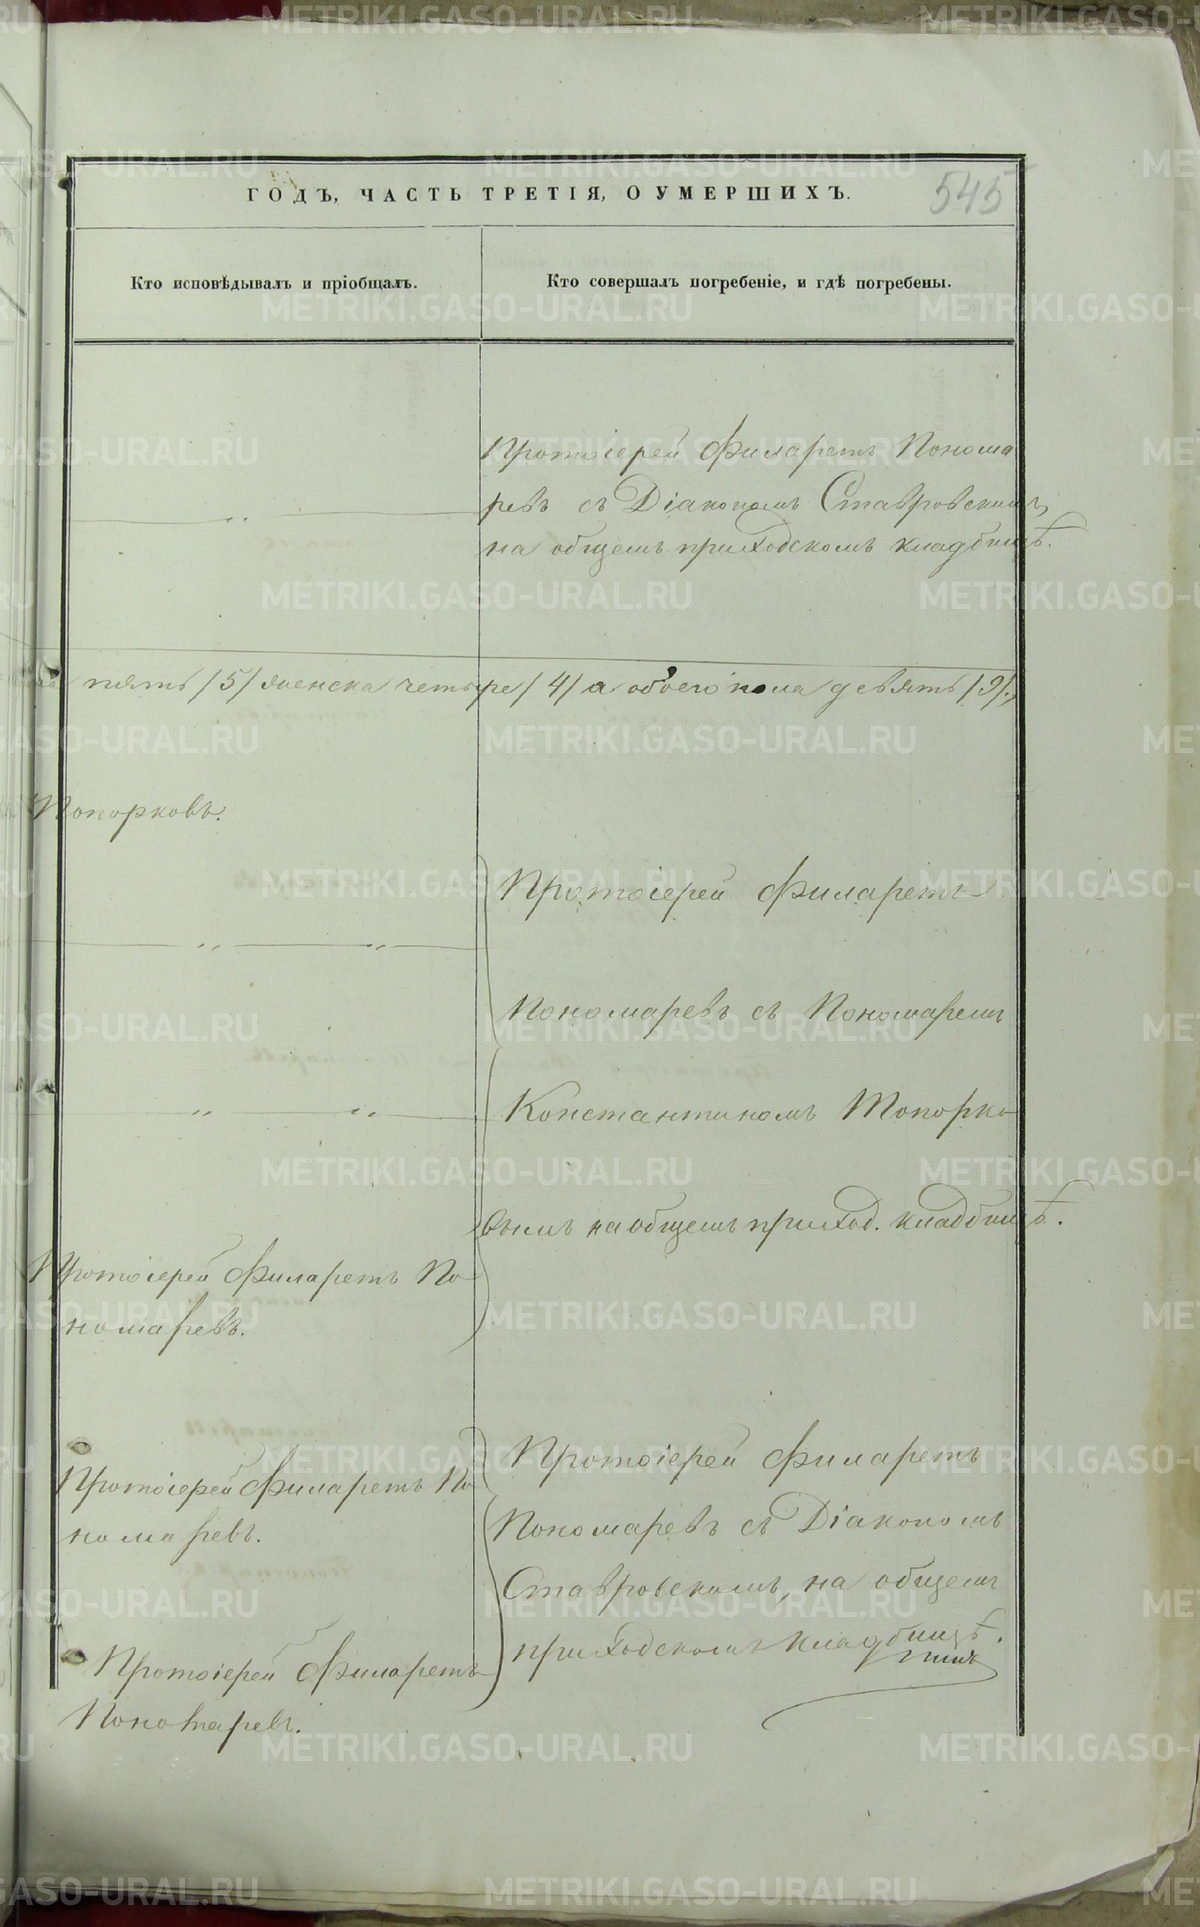 ГОДЪ, ЧАСТЬ ТРЕТІЯ, О УМЕРШИХЪ.
545
Кто исповѣдывалъ и пріобщалъ.
Кто совершалъ погребеніе, и гдѣ погребены.
Протоіерей Филаретъ Понома
ревъ съ Діакономъ Ставровскимъ,
на общемъ приходскомъ кладбищѣ.
пять /5/ женска четыре /4/ а обоего пола девять /9/,
Топорковъ.
Протоіерей Филаретъ
Пономаревъ съ Пономаремъ
Константиномъ Топорко
вымъ на общемъ приход. кладбищѣ.
Протоіерей Филаретъ По
номаревъ.
Протоіерей Филаретъ По
номаревъ.
Протоіерей Филаретъ
Пономаревъ.
Протоіерей Филаретъ
Пономаревъ съ Діакономъ
Ставровскимъ, на общемъ
приходскомъ кладбищѣ.
METRIKI.GASO-URAL.RU